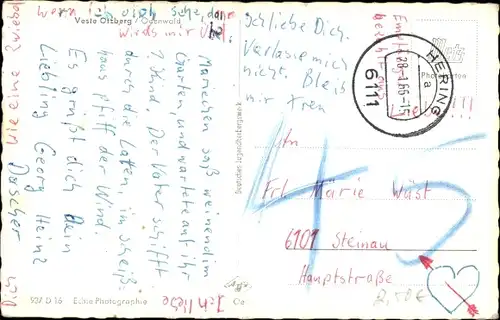 Veste Otzberg / Odenwald
wenn ich dich sehe, dann
wirds mir
wie eine Zwiebel
Mariechen saß weinend im
Garten, und wartete auf ihr
1. Kind. Der Vater schifft
durch die Latten, im Scheiß-
haus pfiff der Wind.
Es grüßt dich Dein
Liebling Georg Heinz
Dascher
Ich liebe
Dich
937 D 16 Echte Photographie
Deutsches Jugendherbergswerk
Agfa
Ce
Ich liebe Dich.
Verlasse mich
nicht. Bleib
mir treu
HERING
28-1.66-15
a
6111
Frl. Marie Wüst
6101 Steinau
Hauptstraße
45